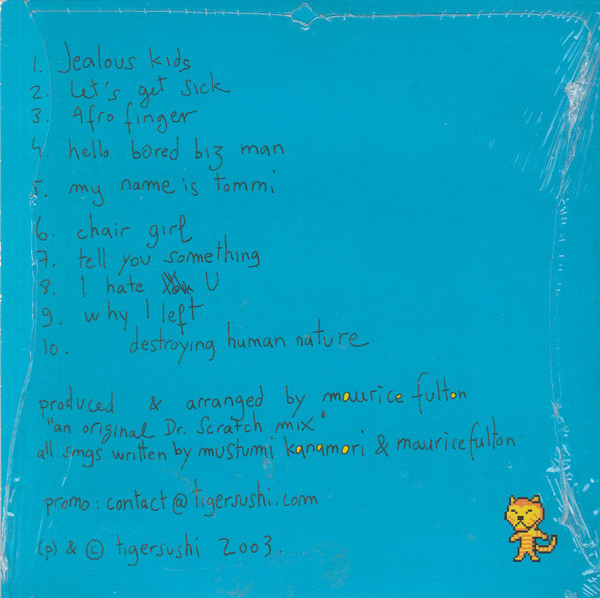 1. Jealous kids
2. Let's get sick
3. Afro finger
4. hello bored biz man
5. my name is tommi
6. chair girl
7. tell you something
8. I hate U
9. why I left
10. destroying human nature
produced & arranged by maurice fulton
"an original Dr. Scratch mix"
all songs written by mustumi kanamori & maurice fulton
promo: contact@tigersushi.com
(p) & © tigersushi 2003.